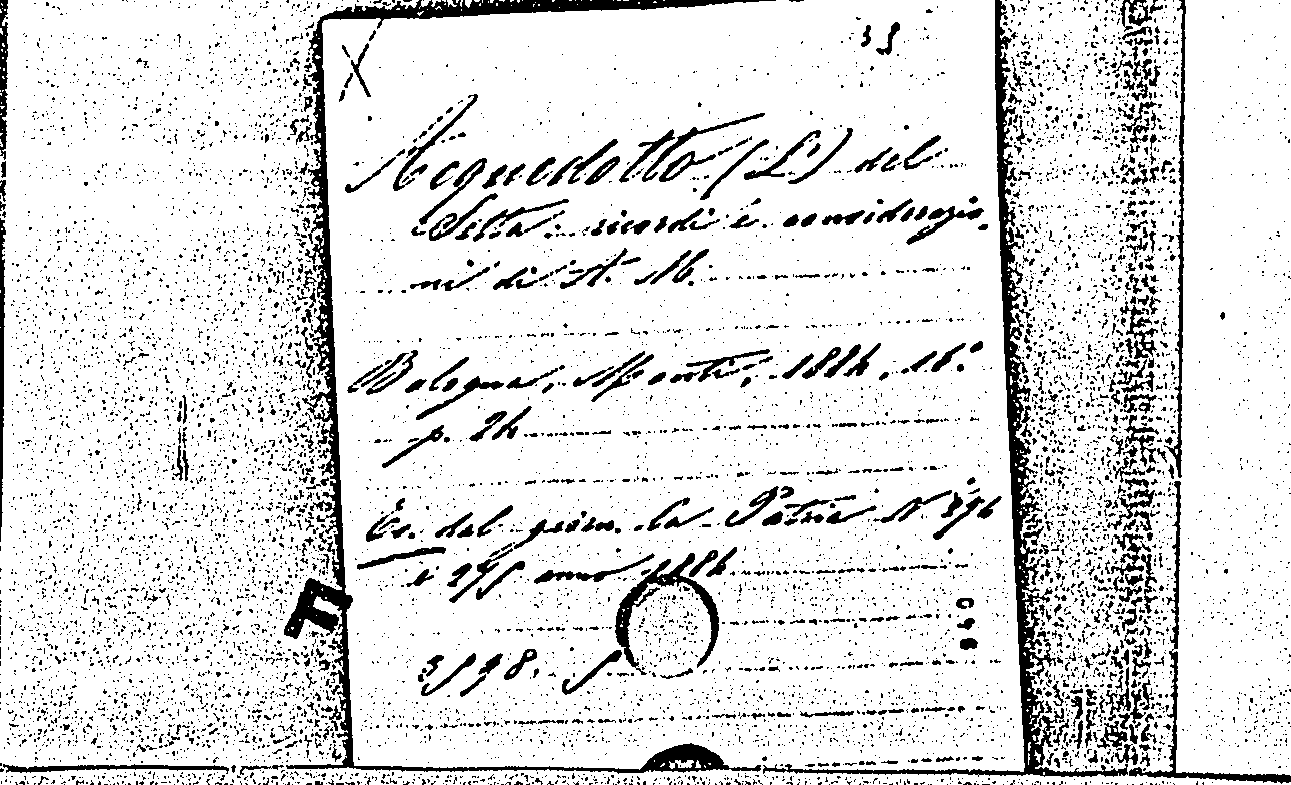 35
Acquedotto (L') del
Setta: ricordi e considerazio-
ni di A. M.
Bologna, Monti, 1884, 16.°
p. 24
Es. dal giorn. La Patria N
e 275 anno 1884
F
3598. 5